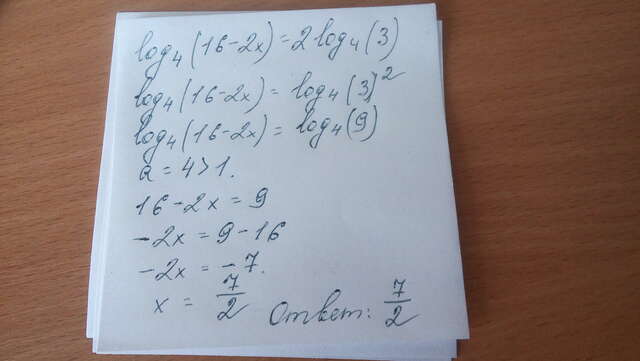 log₄(16-2x)=2log₄(3)
log₄(16-2x)=log₄(3)²
log₄(16-2x)=log₄(9)
a=4>1.
16-2x=9
-2x=9-16
-2x=-7.
x=7/2 Ответ: 7/2